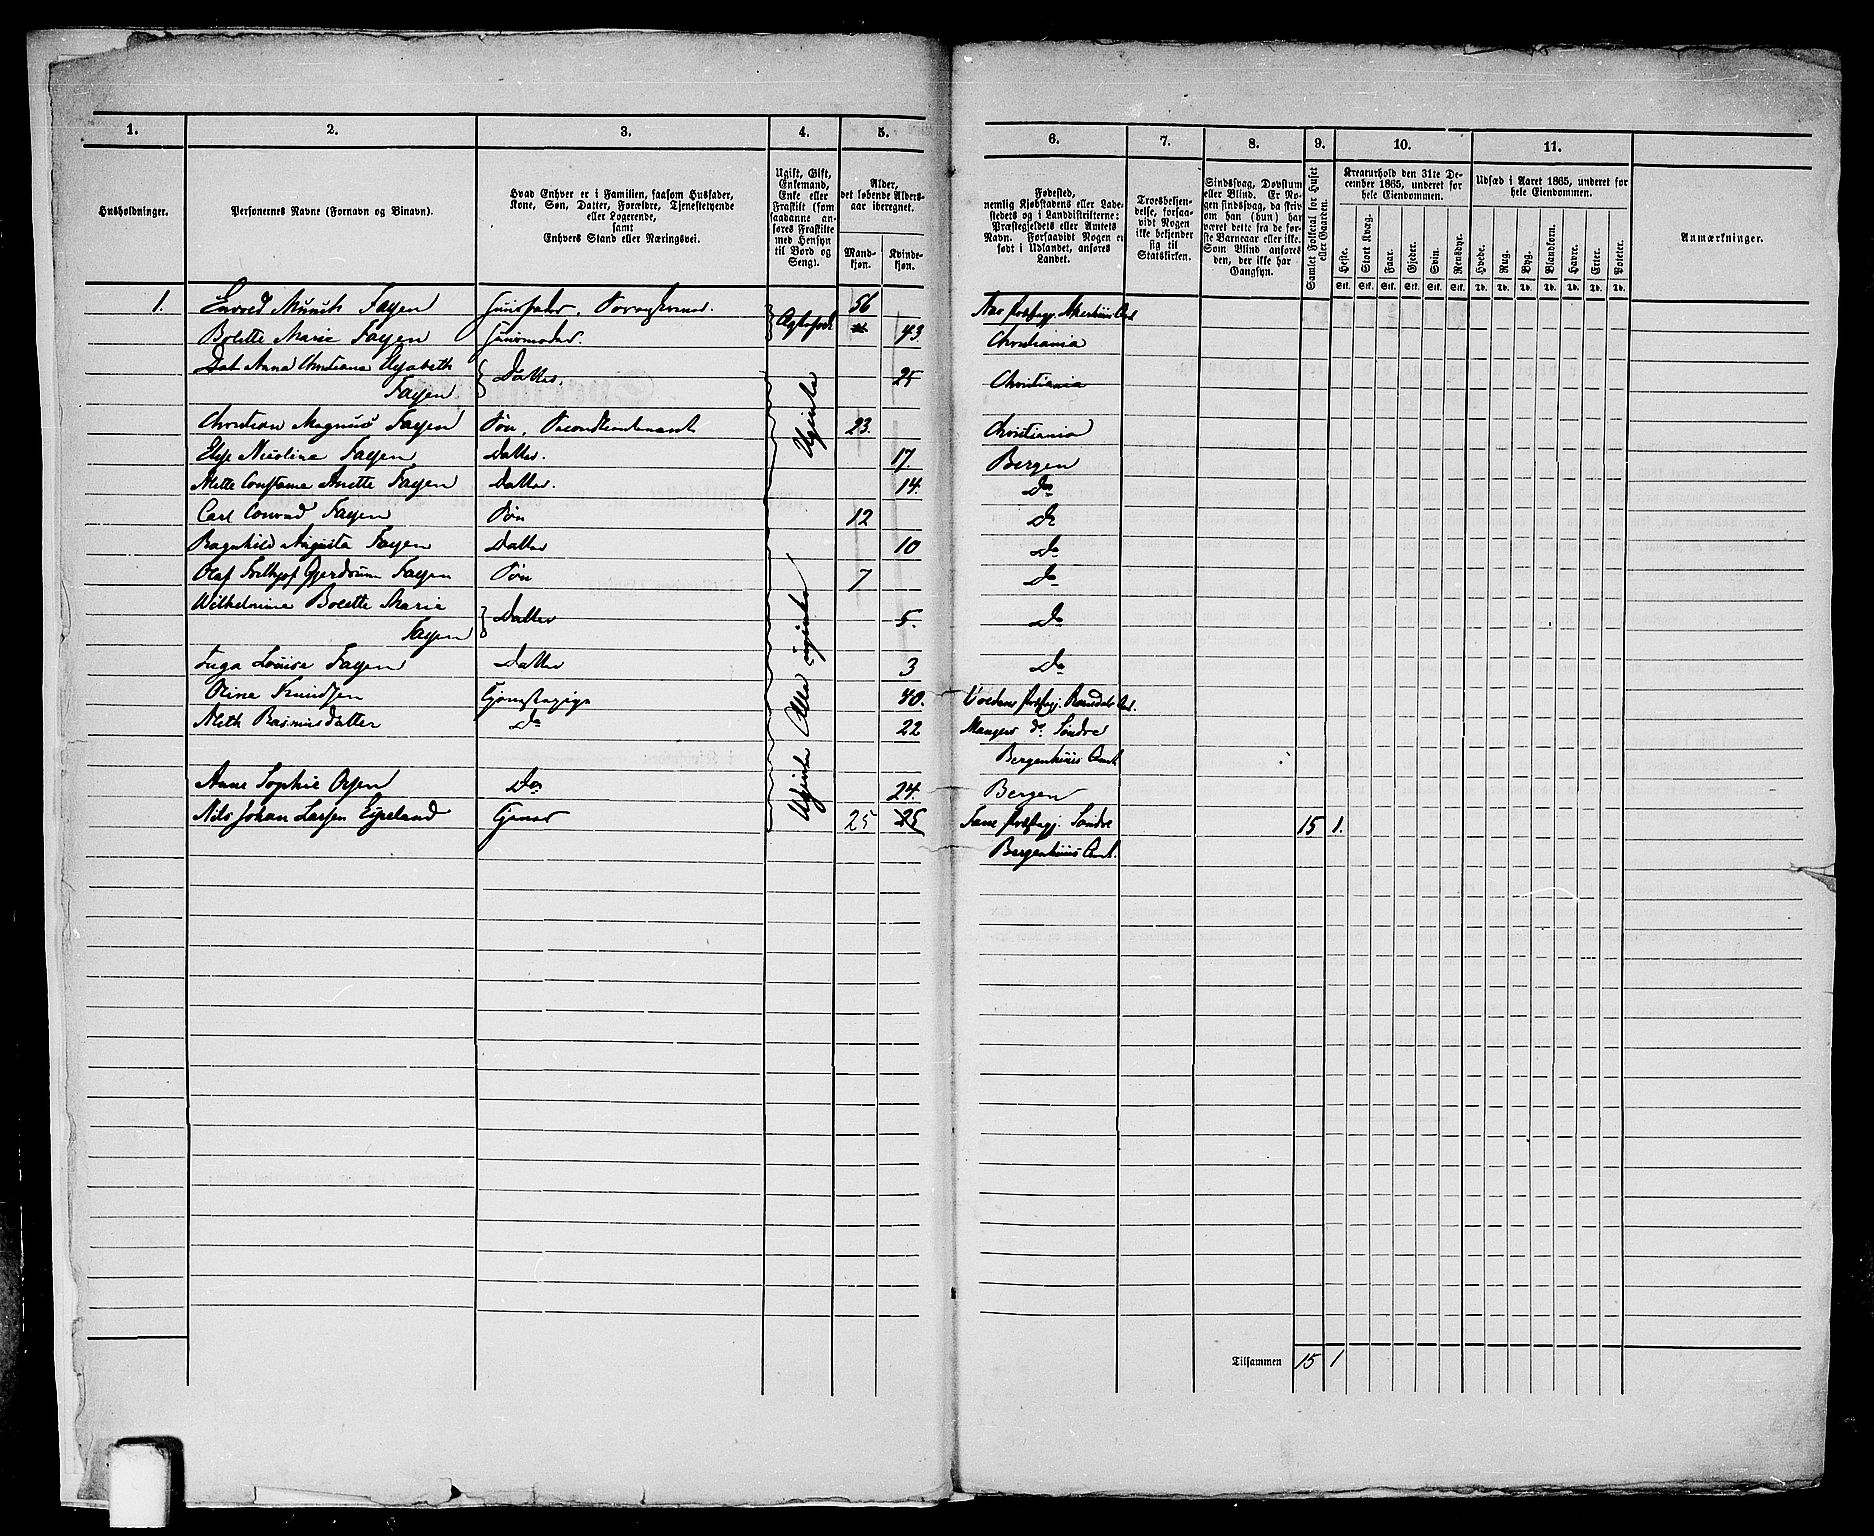 1. 2. 3. 4. 5. 6. 7. 8. 9. 10. 11.
Husholdninger.
Personernes Navne (Fornavn og Binavn).
Hvad Enhver er i Familien, saasom Husfader,
Kone, Søn, Datter, Forældre, Tjenestetyende
eller Logerende,
samt
Enhvers Stand eller Næringsvei.
Ugift, Gift,
Enkemand,
Enke eller
Fraskilt (som
saadanne an-
føres Fraskilte
med Hensyn
til Bord og
Seng).
Alder,
det løbende Alders-
aar iberegnet.
Mand-
kjøn.
Kvinde-
kjøn.
Fødested,
nemlig Kjøbstadens eller Lade-
stedets og i Landdistrikterne:
Præstegjeldets eller Amtets
Navn. Forsaavidt Nogen er
født i Udlandet, anføres
Landet.
Troesbekjen-
delse, forsaa-
vidt Nogen
ikke bekjender
sig til
Statskirken.
Sindssvag, Døvstum
eller Blind. Er No-
gen sindssvag, da skriv
om han (hun) har
været dette fra de før-
ste Barneaar eller ikke.
Som Blind anføres
den, der ikke har
Gangsyn.
Samlet Folketal for Huset
eller Gaarden.
Kreaturhold den 31te De-
cember 1865, underet for
hele Eiendommen.
Heste. Stort Kvæg. Faar. Gjeder. Svin. Rensdyr.
Stk. Stk. Stk. Stk. Stk. Stk.
Udsæd i Aaret 1865, underet for
hele Eiendommen.
Hvede. Rug. Byg. Blandkorn. Havre. Erter. Poteter.
Td. Td. Td. Td. Td. Td. Td.
Anmærkninger.
1. Envold Munch Falsen Huusfader, 56
Bolette Marie Falsen Huusmoder. Ægtefolk 43 Christiania
Anna Christiane Elisabeth
Falsen Datter. 25 Christiania
Christian Magnus Falsen Søn, Secondlieutenant 23 Christiania
Ugifte
Else Nicoline Falsen Datter. 17. Bergen
Mette Constance Anette Falsen Datter. 14. Do
Carl Conrad Falsen Søn 12 Do
Ragnhild Augusta Falsen Datter 10 Do
Olaf Frithjof Gjerdrum Falsen Søn 7 Do
Wilhelmine Bolette Marie
Falsen Datter 5. Do
Inga Louise Falsen Datter 3 Do
Alle ugifte
Oline Knudsen Tjenestepige 40. Voldens Prstgj. Romsdals Amt
Rasmusdatter Do 22 Mangers Do Søndre
Bergenhuus Amt
Anne Sophie Olsen Do 24. Bergen
Ugifte
Nils Johan Larsen Espeland Tjener 25 25 Fane Prstgj. Søndre 15 1.
Bergenhuus Amt.
Tilsammen 15 1